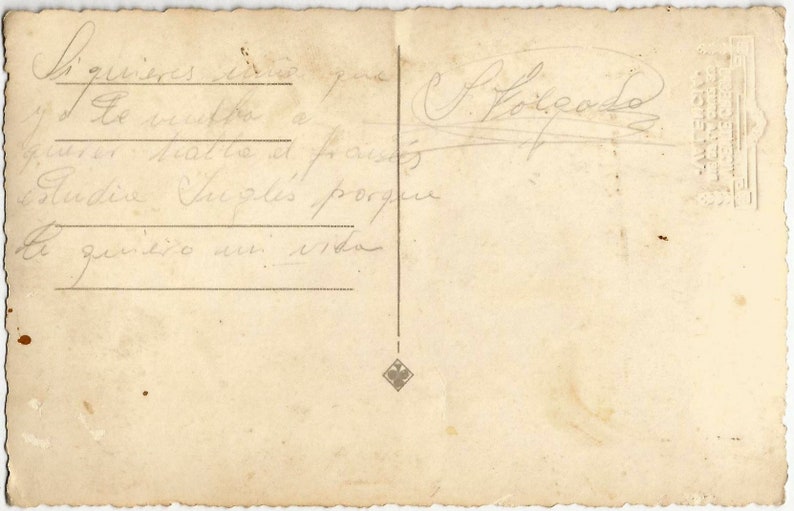 Si quieres niña que
yo te vuelva a
querer habla el francés
estudia Inglés porque
te quiero mi vida
S. Volgado